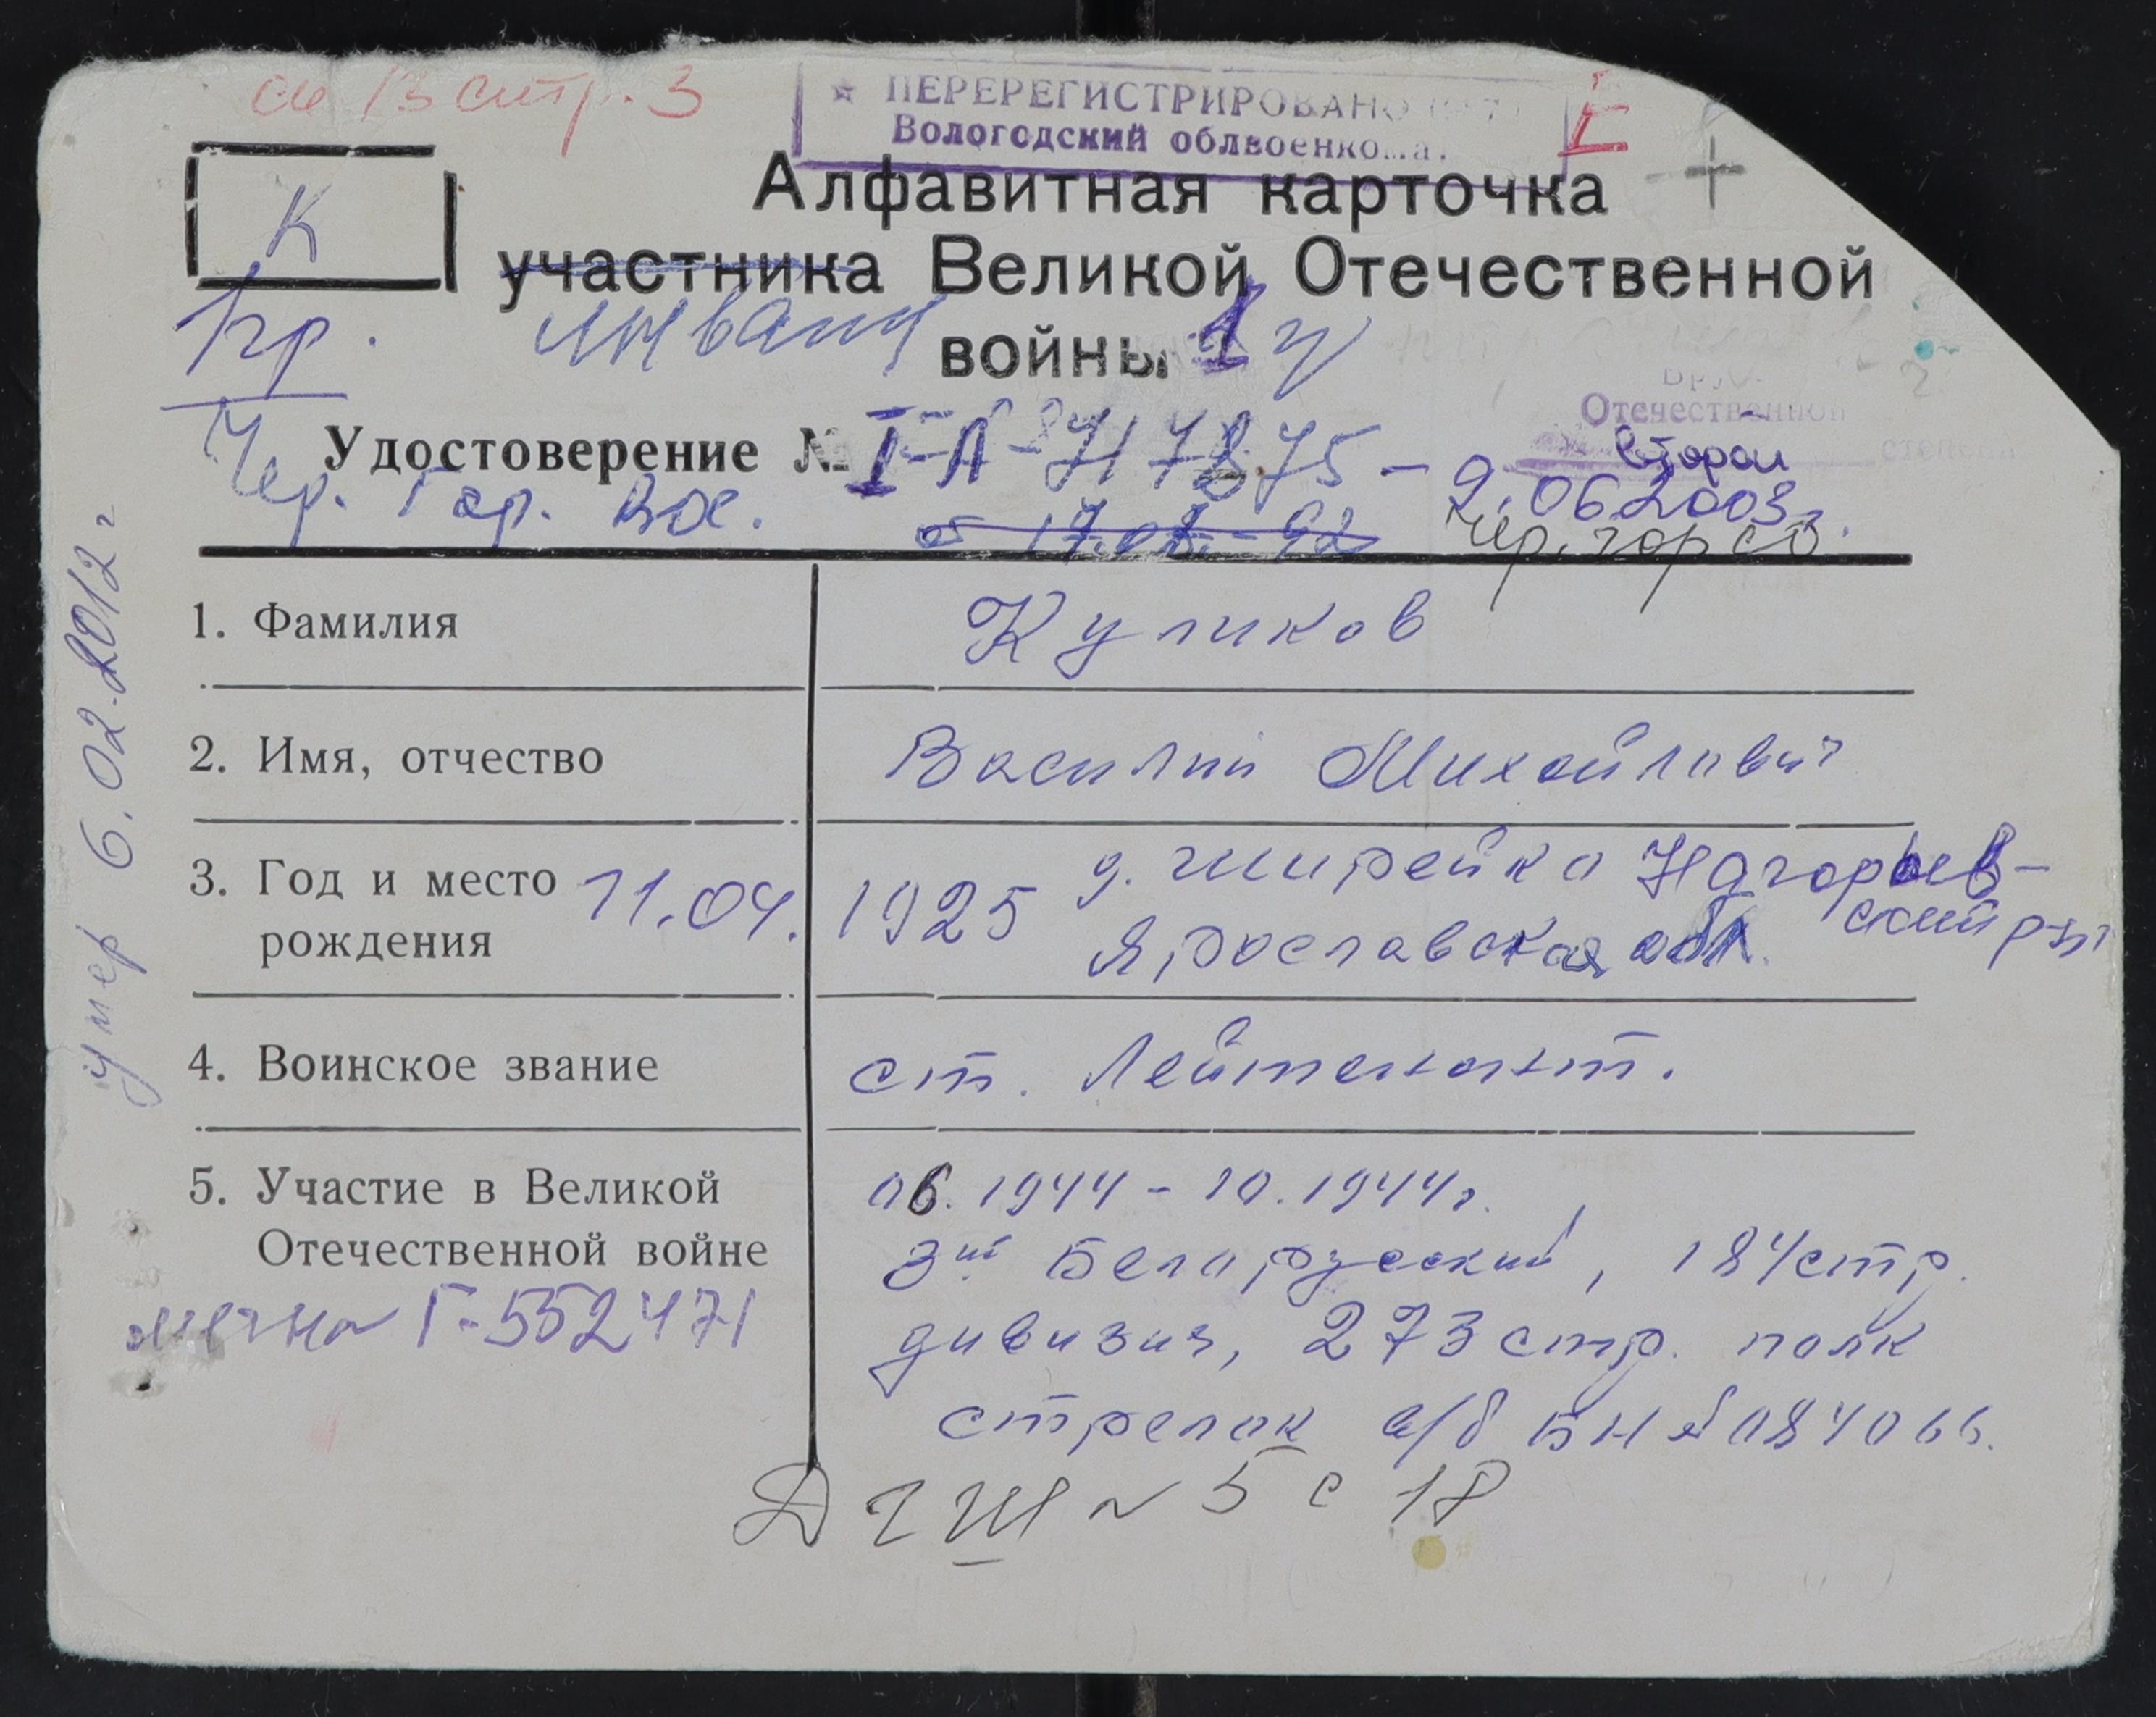 стр. 3
★ ПЕРЕРЕГИСТРИРОВАНО
Вологодский облвоенкомат
К
Алфавитная карточка
участника Великой Отечественной
инвалид войны 1 гр
Отечественной
второй
Удостоверение № I-Л-717875 - 9.06.2003г.
Чер. Гор. Вос.
Чер. гор со
1. Фамилия Куликов
2. Имя, отчество Василий Михайлович
3. Год и место рождения 11.04. 1925 д. Ширейка Нагорьев-
ский р-н
Ярославская обл.
4. Воинское звание ст. Лейтенант.
5. Участие в Великой Отечественной войне
06.1944 - 10.1944г.
3ий Белорусский, 184 стр.
дивизия, 273 стр. полк
стрелок в/б БН № 084066.
Г-552471
№ 5 с 18
умер 6.02.2012 г